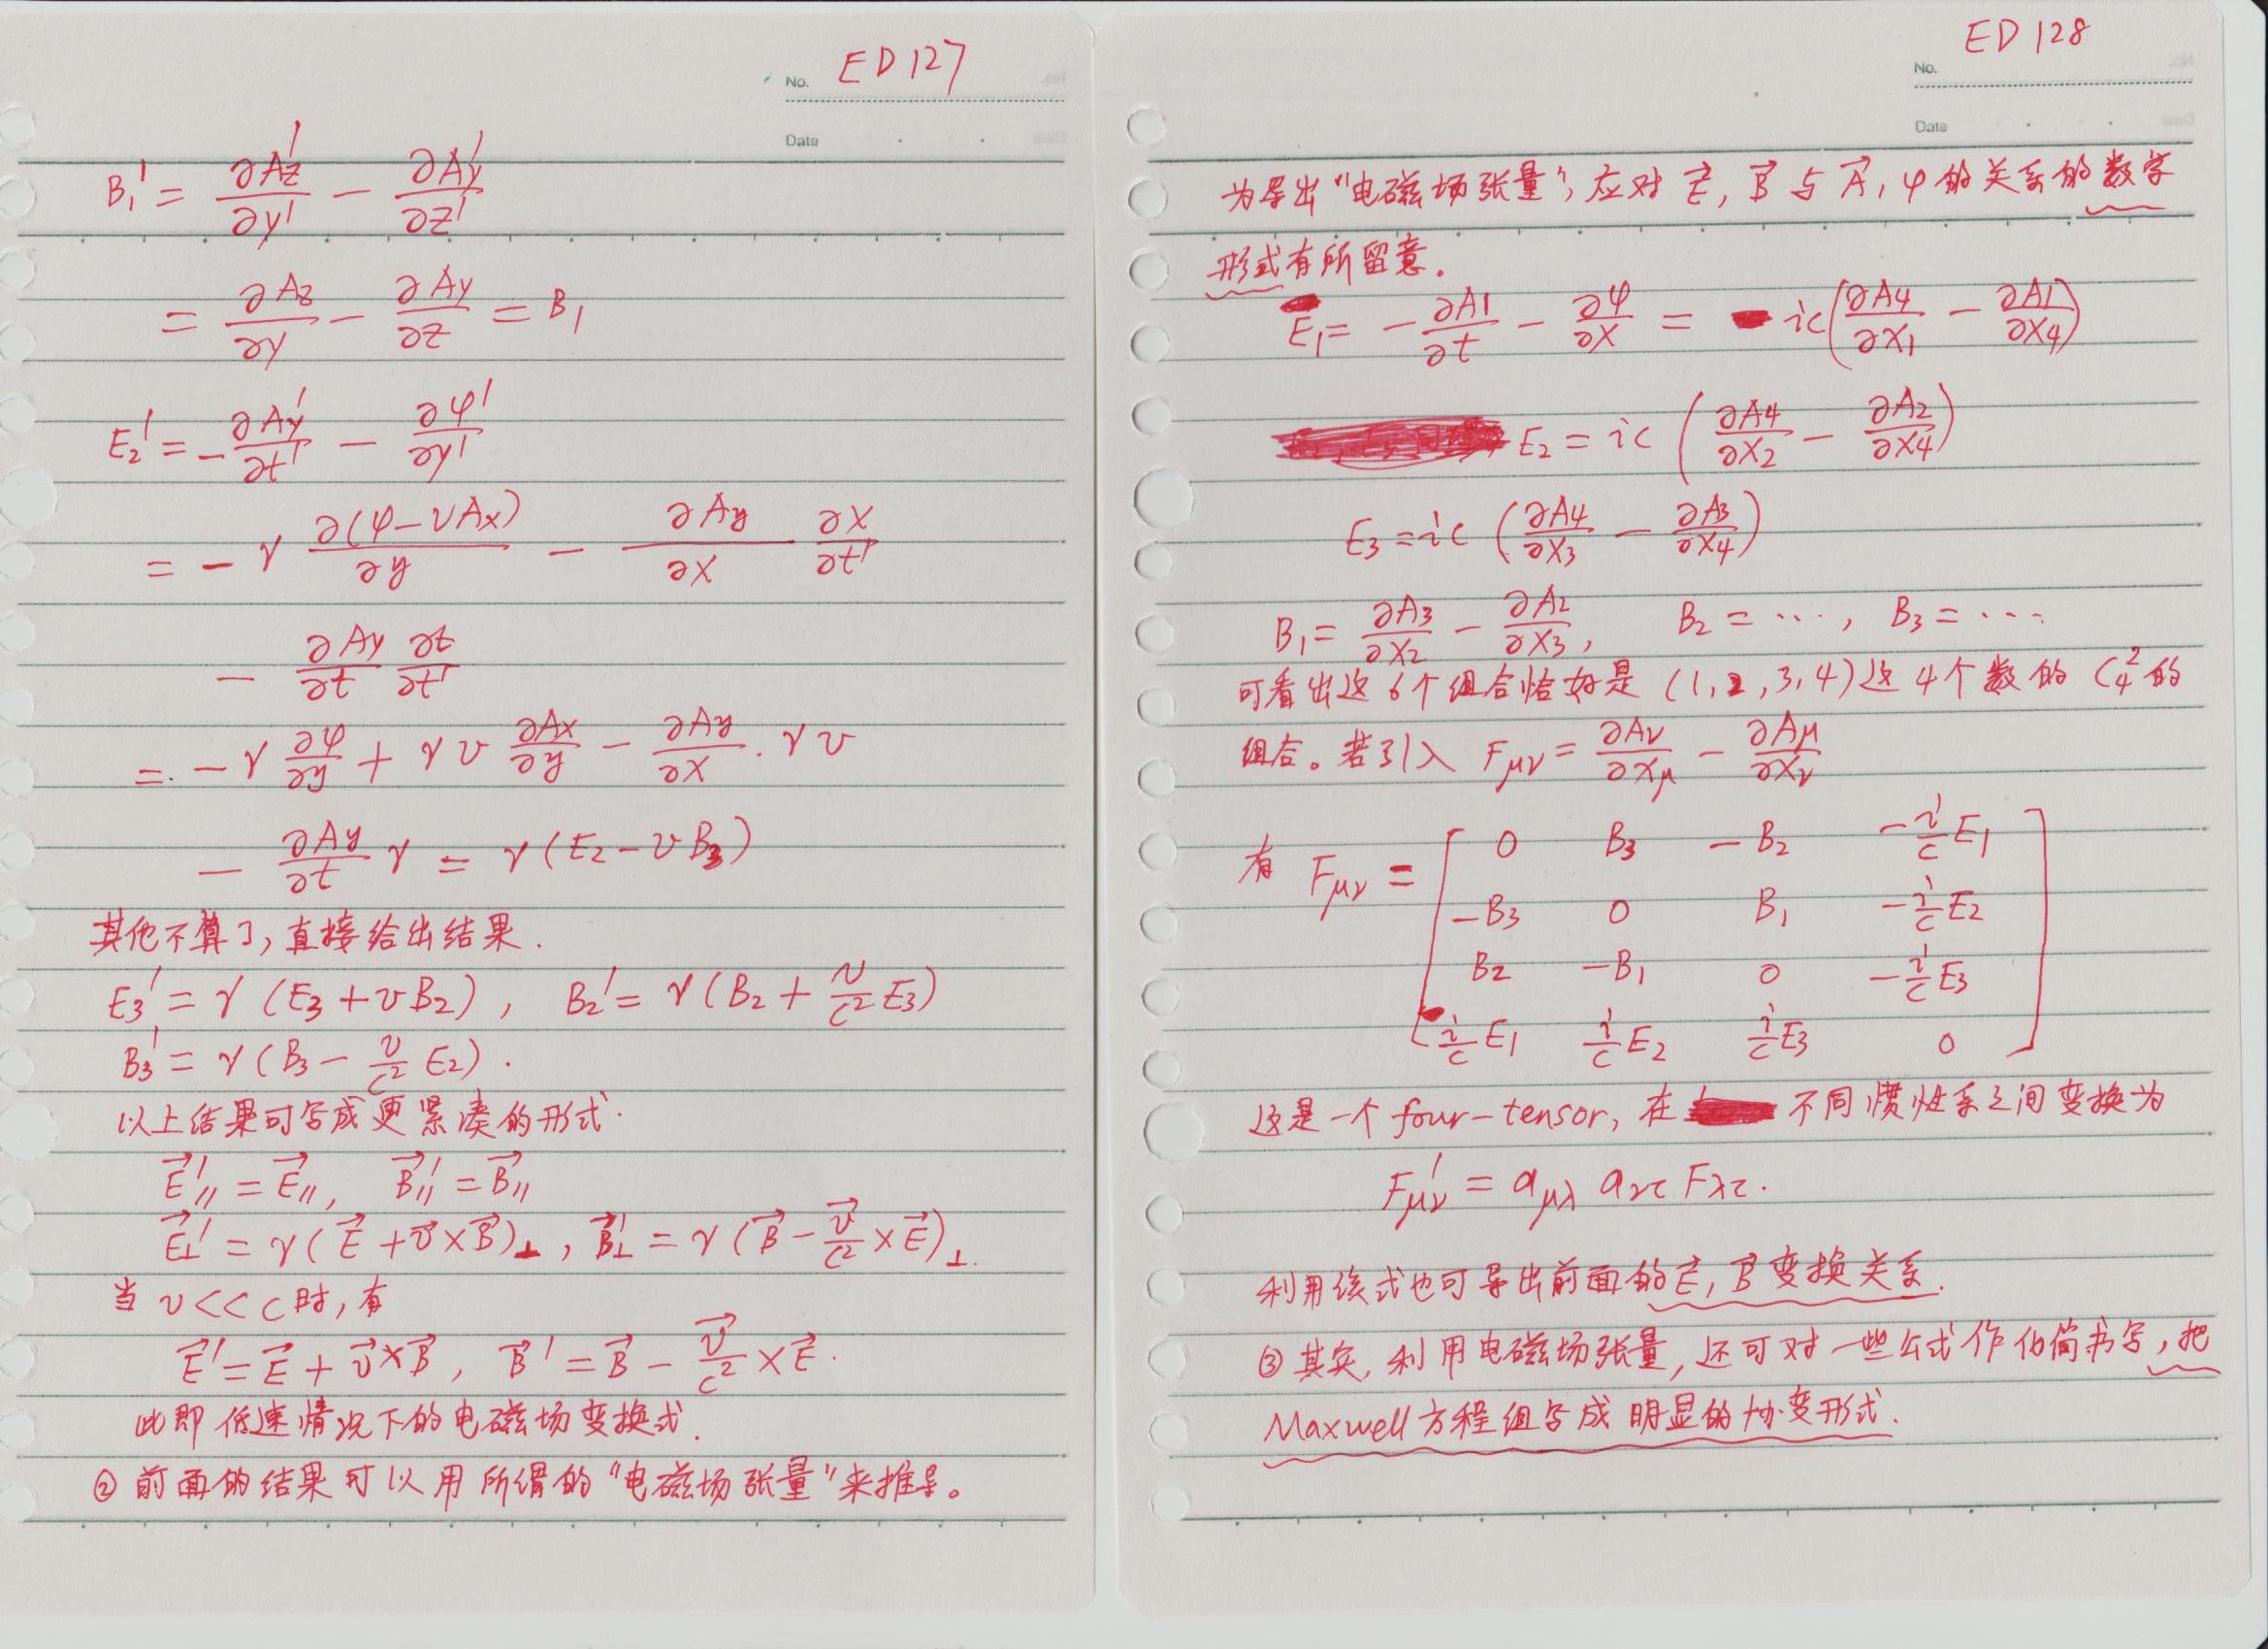 No. ED 127
Date
B₁' = ∂Az'/∂y' − ∂Ay'/∂z'
= ∂Az/∂y − ∂Ay/∂z = B₁
E₂' = −∂Ay'/∂t' − ∂φ'/∂y'
= −γ ∂(φ−vAx)/∂y − ∂Ay/∂x ∂x/∂t'
− ∂Ay/∂t ∂t/∂t'
= −γ ∂φ/∂y + γv ∂Ax/∂y − ∂Ay/∂x · γv
− ∂Ay/∂t γ = γ(E₂−vB₃)
其他不算了,直接给出结果.
E₃' = γ(E₃+vB₂), B₂' = γ(B₂ + v/c² E₃)
B₃' = γ(B₃ − v/c² E₂).
以上结果可写成更紧凑的形式.
E⃗'∥ = E⃗∥, B⃗'∥ = B⃗∥
E⃗⊥' = γ(E⃗ + v⃗×B⃗)⊥, B⃗⊥' = γ(B⃗ − v⃗/c² ×E⃗)⊥.
当 v<<c时,有
E⃗' = E⃗ + v⃗×B⃗, B⃗' = B⃗ − v⃗/c² ×E⃗.
此即低速情况下的电磁场变换式.
② 前面的结果可以用所谓的“电磁场张量”来推导。
No. ED 128
Date
为导出“电磁场张量”,应对 E⃗, B⃗ 与 A⃗, φ 的关系的数学
形式有所留意.
E₁ = −∂A1/∂t − ∂φ/∂x = ic(∂A4/∂x₁ − ∂A1/∂x₄)
E₂ = ic(∂A4/∂x₂ − ∂A2/∂x₄)
E₃ = ic(∂A4/∂x₃ − ∂A3/∂x₄)
B₁ = ∂A3/∂x₂ − ∂A2/∂x₃, B₂ = ···, B₃ = ···
可看出这6个组合恰好是(1,2,3,4)这4个数的 C₄²的
组合。若引入 Fμν = ∂Aν/∂xμ − ∂Aμ/∂xν
有 Fμν = [ 0 B₃ −B₂ −i/c E₁
−B₃ 0 B₁ −i/c E₂
B₂ −B₁ 0 −i/c E₃
i/c E₁ i/c E₂ i/c E₃ 0 ]
这是一个 four-tensor, 在 不同惯性系之间变换为
F'μν = aμλ aντ Fλτ.
利用该式也可导出前面的E⃗, B⃗变换关系.
③ 其实,利用电磁场张量,还可对一些公式作化简书写,把
Maxwell方程组写成明显的协变形式.